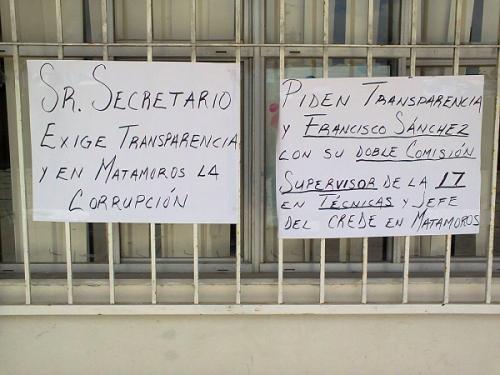 SR. SECRETARIO
EXIGE TRANSPARENCIA
Y EN MATAMOROS LA
CORRUPCIÓN
PIDEN TRANSPARENCIA
Y FRANCISCO SÁNCHEZ
CON SU DOBLE COMISIÓN
SUPERVISOR DE LA 17
EN TÉCNICAS Y JEFE
DEL CREDE EN MATAMOROS